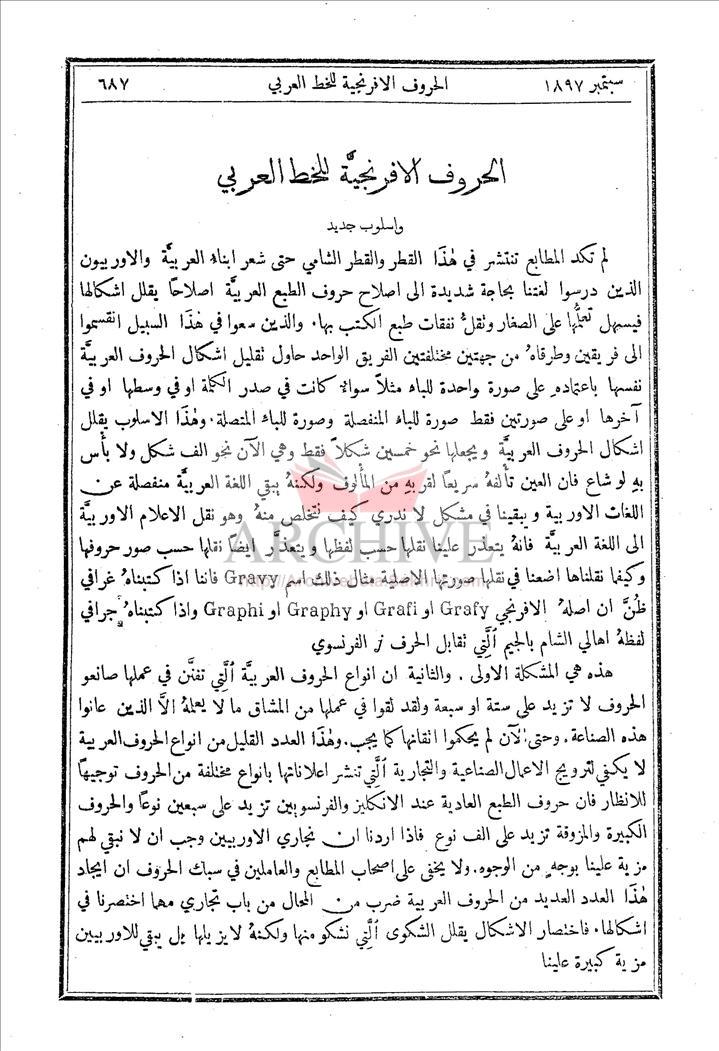 سبتمبر ١٨٩٧ الحروف الافرنجية للخط العربي ٦٨٧
الحروف الافرنجيَّة للخط العربي
واسلوب جديد
لم تكد المطابع تنتشر في هٰذا القطر والقطر الشامي حتى شعر ابناء العربيَّة والاوربيون
الذين درسوا لغتنا بحاجة شديدة الى اصلاح حروف الطبع العربيَّة اصلاحًا يقلل اشكالها
فيسهل تعلُّمها على الصغار وتقلُّ نفقات طبع الكتب بها. والذين سعوا في هٰذا السبيل انقسموا
الى فريقين وطرقاهُ من جهتين مختلفتين الفريق الواحد حاول تقليل اشكال الحروف العربيَّة
نفسها باعتمادهِ على صورة واحدة للباء مثلاً سواءٌ كانت في صدر الكلمة او في وسطها او في
آخرها او على صورتين فقط صورة للباء المنفصلة وصورة للباء المتصلة. وهٰذا الاسلوب يقلل
اشكال الحروف العربيَّة ويجعلها نحو خمسين شكلاً فقط وهي الآن نحو الف شكل ولا بأس
بهِ لو شاع فان العين تألفهُ سريعًا لقربهِ من المألوف ولكنهُ يبقي اللغة العربيَّة منفصلة عن
اللغات الاوربية ويبقينا في مشكل لا ندري كيف نتخلص منهُ وهو نقل الاعلام الاوربيَّة
الى اللغة العربيَّة فانهُ يتعذَّر علينا نقلها حسب لفظها ويتعذَّر ايضًا نقلها حسب صور حروفها
وكيفما نقلناها اضعنا في نقلها صورتها الاصلية مثال ذلك اسم Gravy فاننا اذا كتبناهُ غرافي
ظُنَّ ان اصلهُ الافرنجي Grafy او Grafi او Graphy او Graphi واذا كتبناهُ جرافي
لفظهُ اهالي الشام بالجيم ٱلَّتي تقابل الحرف j الفرنسوي
هذه هي المشكلة الاولى. والثانية ان انواع الحروف العربيَّة ٱلَّتي تفنَّن في عملها صانعو
الحروف لا تزيد على ستة او سبعة ولقد لقوا في عملها من المشاق ما لا يعلمهُ الاَّ الذين عانوا
هذه الصناعة. وحتى الآن لم يحكموا اتقانها كما يجب. وهٰذا العدد القليل من انواع الحروف العربية
لا يكفي لترويج الاعمال الصناعية والتجارية ٱلَّتي تنشر اعلاناتها بانواع مختلفة من الحروف توجيهًا
للانظار فان حروف الطبع العادية عند الانكليز والفرنسويين تزيد على سبعين نوعًا والحروف
الكبيرة والمزوقة تزيد على الف نوع فاذا اردنا ان نجاري الاوربيين وجب ان لا نبقي لهم
مزية علينا بوجهٍ من الوجوه. ولا يخفى على اصحاب المطابع والعاملين في سبك الحروف ان ايجاد
هٰذا العدد العديد من الحروف العربية ضرب من المحال من باب تجاري مهما اختصرنا في
اشكالها. فاختصار الاشكال يقلل الشكوى ٱلَّتي نشكو منها ولكنهُ لا يزيلها بل يبقي للاوربيين
مزية كبيرة علينا
ARCHIVE